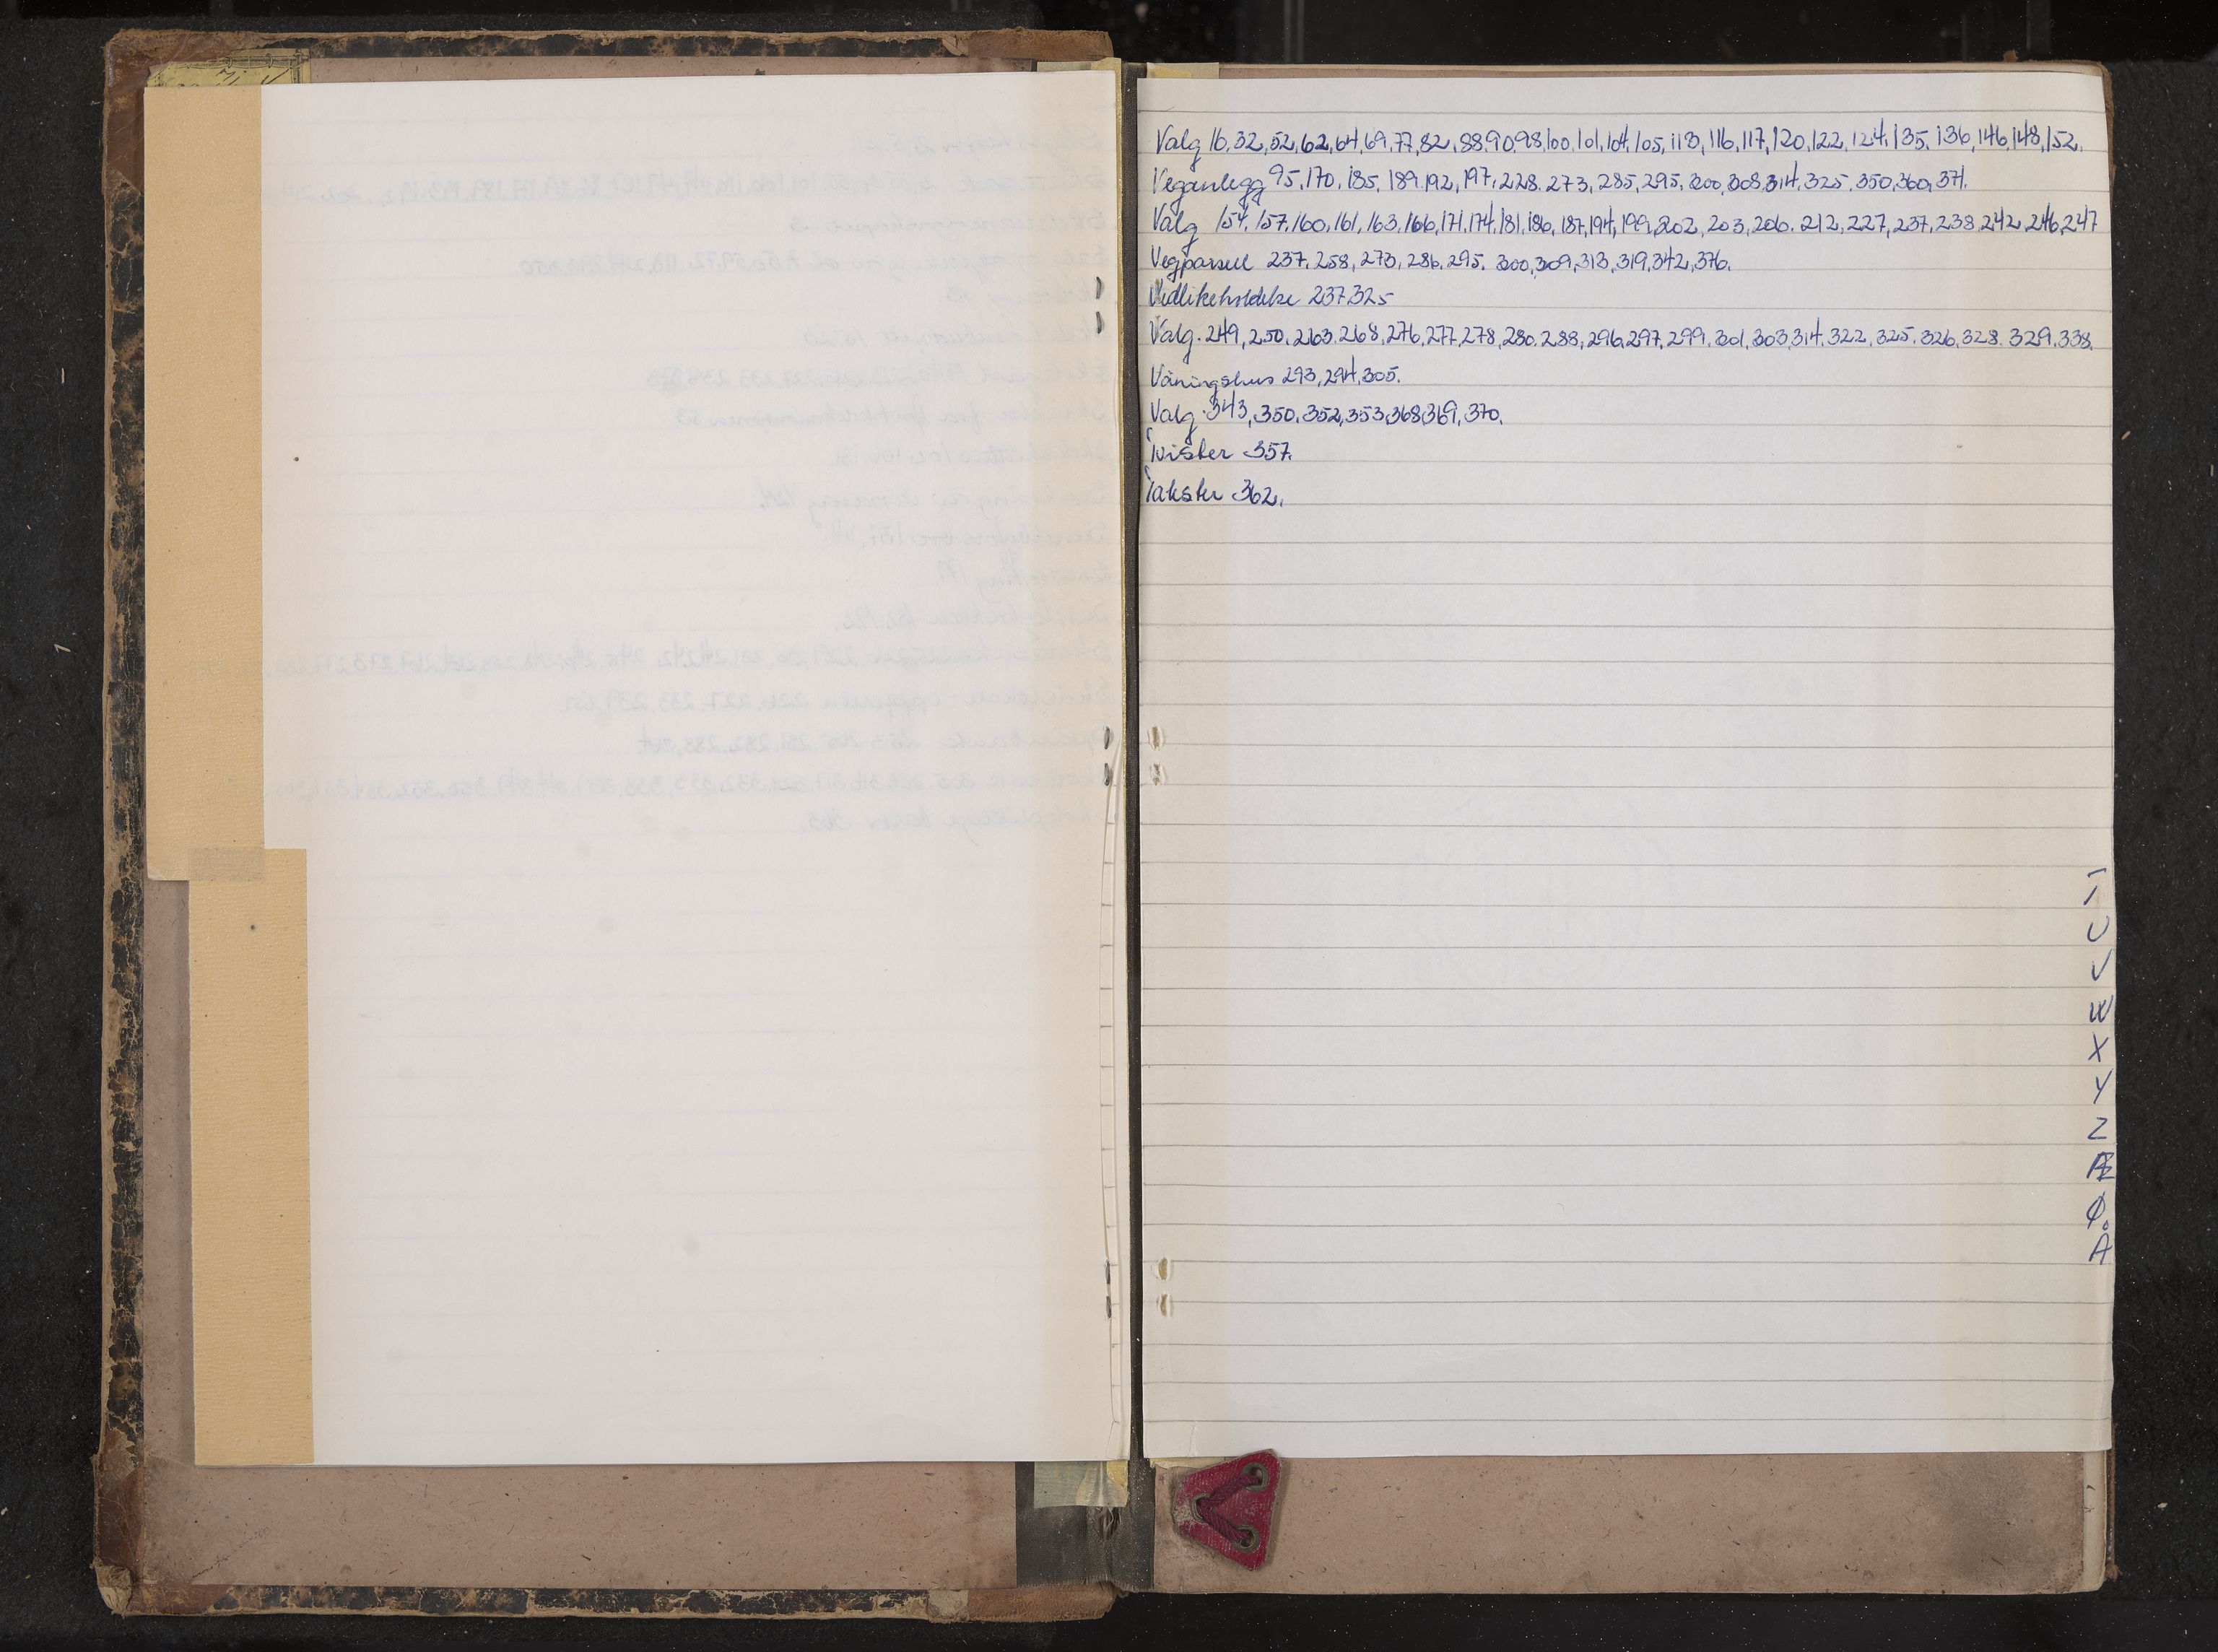 Valg 16,32,52,62,64,69,77,82,88,90,98,100,101,104,105,113,116,117,120,122,124,135,136,146,148,152.
Veganlegg 95,170,185,189,192,197,228,273,285,295,300,308,314,325,350,360,371.
Valg 154,157,160,161,163,166,171,174,181,186,187,194,199,202,203,206,212,227,237,238,242,246,247
Vegparsell 237,258,273,286,295,300,309,313,319,342,376.
Vedlikeholdelse 237,325
Valg. 249,250,263,268,276,277,278,280,288,296,297,299,301,303,314,322,325,326,328,329,338.
Våningshus 293,294,305.
Valg. 343,350,352,353,368,369,370.
Tvister 357.
Takster 362.
T
U
V
W
X
Y
Z
Æ
Ø
Å